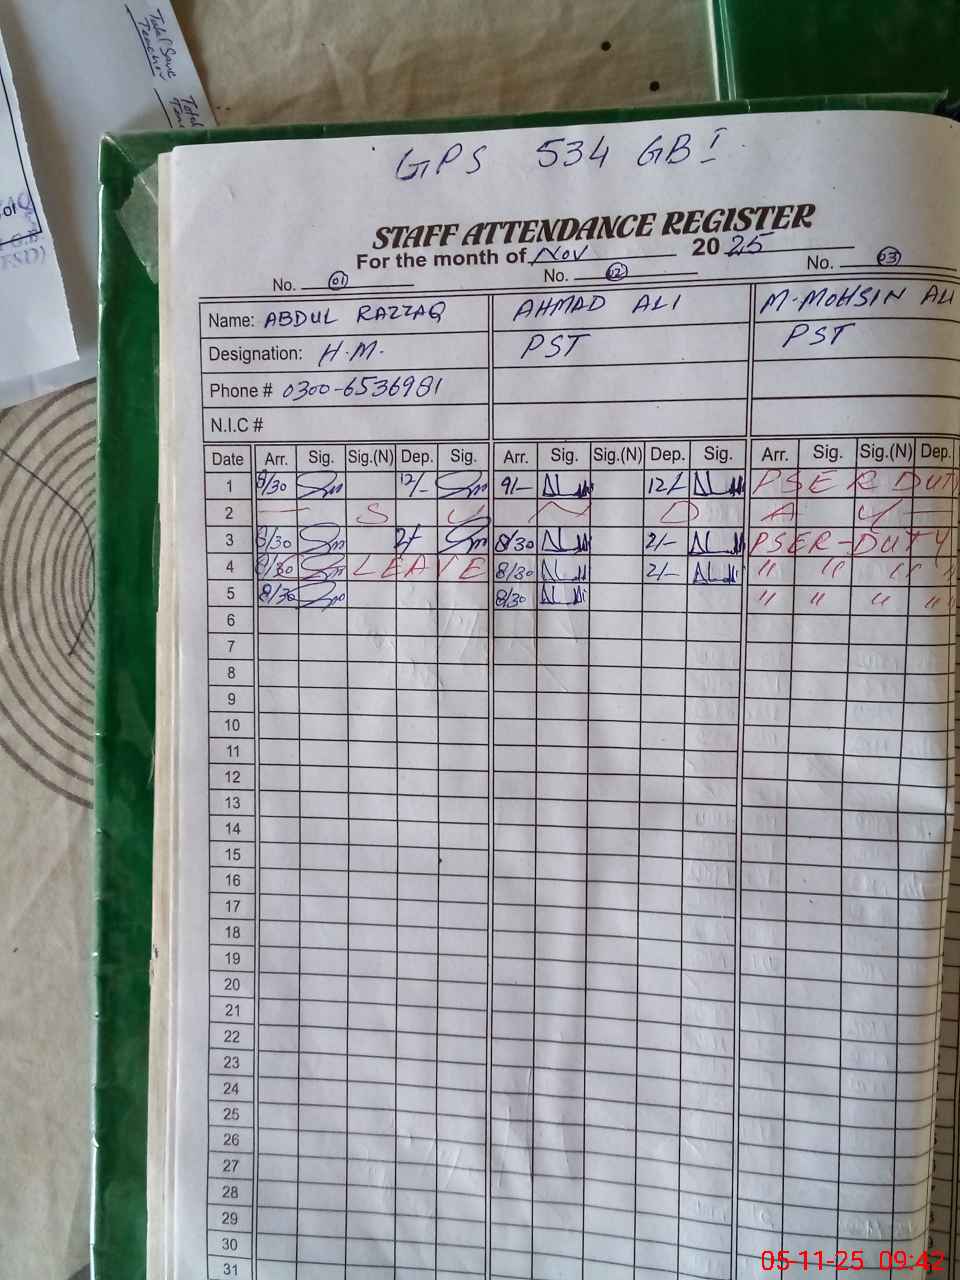 Total Sanc
Teacher
Total
of
G.B
FSD)
GPS 534 GB I
STAFF ATTENDANCE REGISTER
For the month of Nov 2025
No. 01 No. 02 No. 03
Name: ABDUL RAZZAQ AHMAD ALI M. MOHSIN ALI
Designation: H.M. PST PST
Phone # 0300-6536981
N.I.C #
Date Arr. Sig. Sig.(N) Dep. Sig. Arr. Sig. Sig.(N) Dep. Sig. Arr. Sig. Sig.(N) Dep.
1 8/30 12/- 9/- 12/- PSER DUTY
2 — S U N D A Y —
3 8/30 2/- 8/30 2/- PSER-DUTY
4 8/30 LEAVE 8/30 2/- " " " "
5 8/30 8/30 " " " "
6
7
8
9
10
11
12
13
14
15
16
17
18
19
20
21
22
23
24
25
26
27
28
29
30
31
05-11-25 09:42